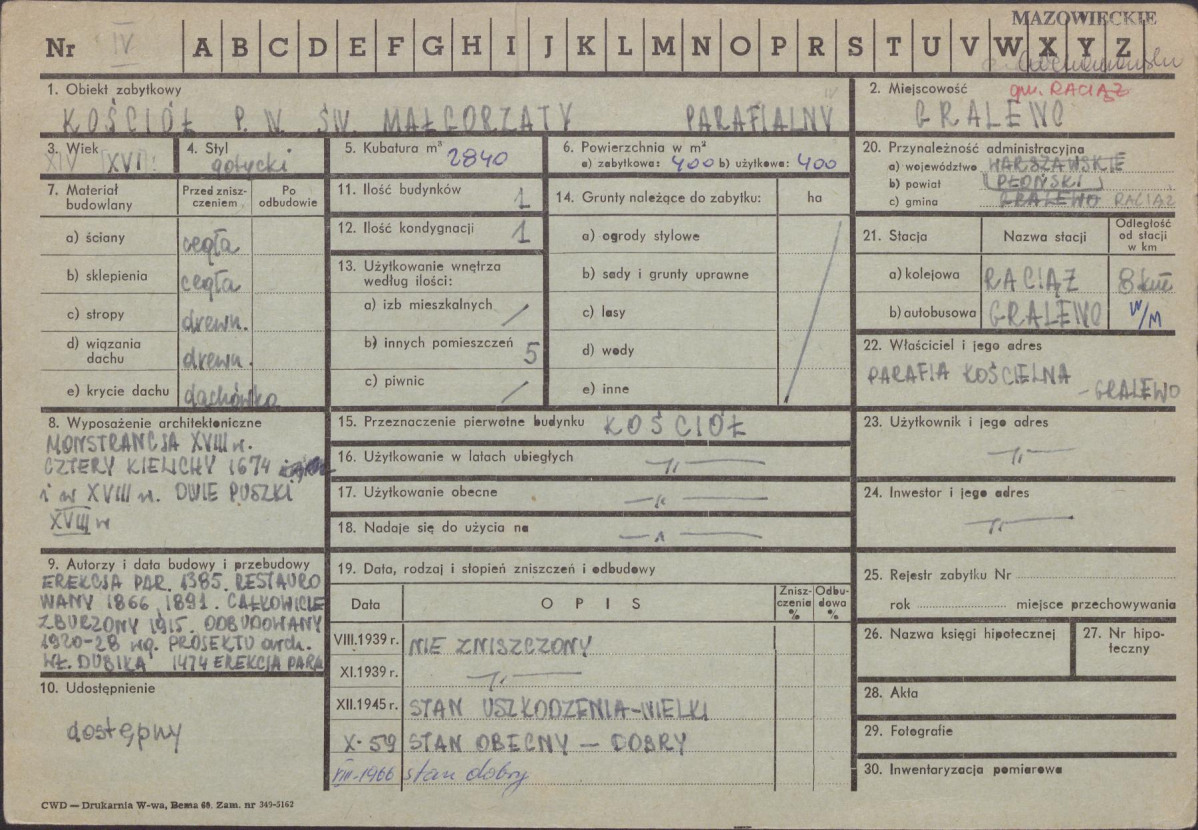 MAZOWIECKIE
Nr IV A B C D E F G H I J K L M N O P R S T U V W X Y Z
1. Obiekt zabytkowy
KOŚCIÓŁ P. W. ŚW. MAŁGORZATY PARAFIALNY
2. Miejscowość gm. RACIĄŻ
GRALEWO
3. Wiek
XIV XVI
4. Styl
gotycki
5. Kubatura m³ 2840
6. Powierzchnia w m²
a) zabytkowa: 400 b) użytkowa: 400
20. Przynależność administracyjna
a) województwo WARSZAWSKIE
b) powiat PŁOŃSKI
c) gmina GRALEWO RACIĄŻ
7. Materiał budowlany
Przed zniszczeniem
Po odbudowie
a) ściany cegła
b) sklepienia cegła
c) stropy drewn.
d) wiązania dachu drewn.
e) krycie dachu dachówka
11. Ilość budynków 1
12. Ilość kondygnacji 1
13. Użytkowanie wnętrza
według ilości:
a) izb mieszkalnych /
b) innych pomieszczeń 5
c) piwnic /
14. Grunty należące do zabytku: ha
a) ogrody stylowe
b) sady i grunty uprawne
c) lasy
d) wody
e) inne
21. Stacja
Nazwa stacji
Odległość
od stacji
w km
a) kolejowa RACIĄŻ 8 km
b) autobusowa GRALEWO W/M
22. Właściciel i jego adres
PARAFIA KOŚCIELNA
- GRALEWO
8. Wyposażenie architektoniczne
MONSTRANCJA XVIII w.
CZTERY KIELICHY 1674
i w XVIII w. DWIE PUSZKI
XVIII w
15. Przeznaczenie pierwotne budynku KOŚCIÓŁ
16. Użytkowanie w latach ubiegłych —"—
17. Użytkowanie obecne —"—
18. Nadaje się do użycia na —"—
23. Użytkownik i jego adres
—"—
24. Inwestor i jego adres
—"—
9. Autorzy i data budowy i przebudowy
EREKCJA PAR. 1385. RESTAURO
WANY 1866, 1891. CAŁKOWICIE
ZBURZONY 1915. ODBUDOWANY
1920-28 wg. PROJEKTU arch.
WŁ. DUBIKA 1474 EREKCJA PARA
10. Udostępnienie
dostępny
19. Data, rodzaj i stopień zniszczeń i odbudowy
Data
OPIS
Zniszczenia %
Odbudowa %
VIII.1939 r. NIE ZNISZCZONY
XI.1939 r. —"—
XII.1945 r. STAN USZKODZENIA-WIELKI
X-59 STAN OBECNY — DOBRY
VIII-1966 stan dobry
25. Rejestr zabytku Nr
rok miejsce przechowywania
26. Nazwa księgi hipotecznej
27. Nr hipoteczny
28. Akta
29. Fotografie
30. Inwentaryzacja pomiarowa
CWD — Drukarnia W-wa, Bema 60. Zam. nr 349-5162